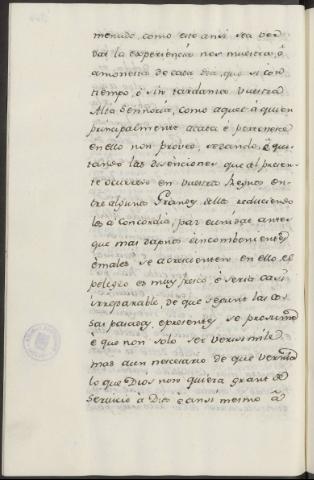 menudo, como esto ansi sea ver
dat la experiencia nos muestra, è
amonesta de cada dia, que si con
tiempo, è sin tardanza Vuestra
Alta Sennoria, como aquel à quien
principalmente acata è pertenece
en ello non provee, cesando, è qui
tando las disenciones que al presen
te ocurren en vuestros Regnos en
tre algunos Grandes dellos reduciendo
los à Concordia, paz è unidat antes
que mas dapnos è incombenientes
è males se acrecienten en ello el
peligro es muy presto, è seria casi
irreparable, de que segunt las co
sas pasadas, è presentes se presume
è que non solo ser verisimile
mas aun necesario de que vernia
lo que Dios non quiera grant de
servicio à Dios è ansi mesmo à